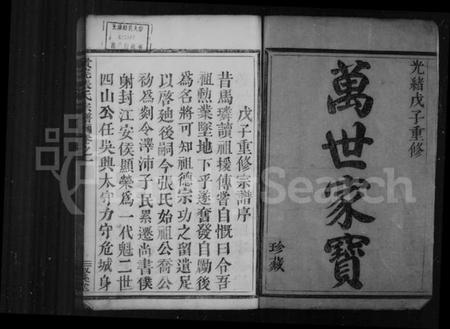 光緒戊子重修
萬世家寶
珍藏
戊子重修宗譜序
昔馬璘讀祖援傳嘗自慨曰令吾
祖勲業墜地下乎遂奮發自勵後
為名將可知祖德宗功之留遺足
以啓迪後嗣今張氏始祖公喬公
初為剡令澤沛子民累遷尚書僕
射封江安侯顯榮為一代魁二世
四山公任吳興太守方守危城身